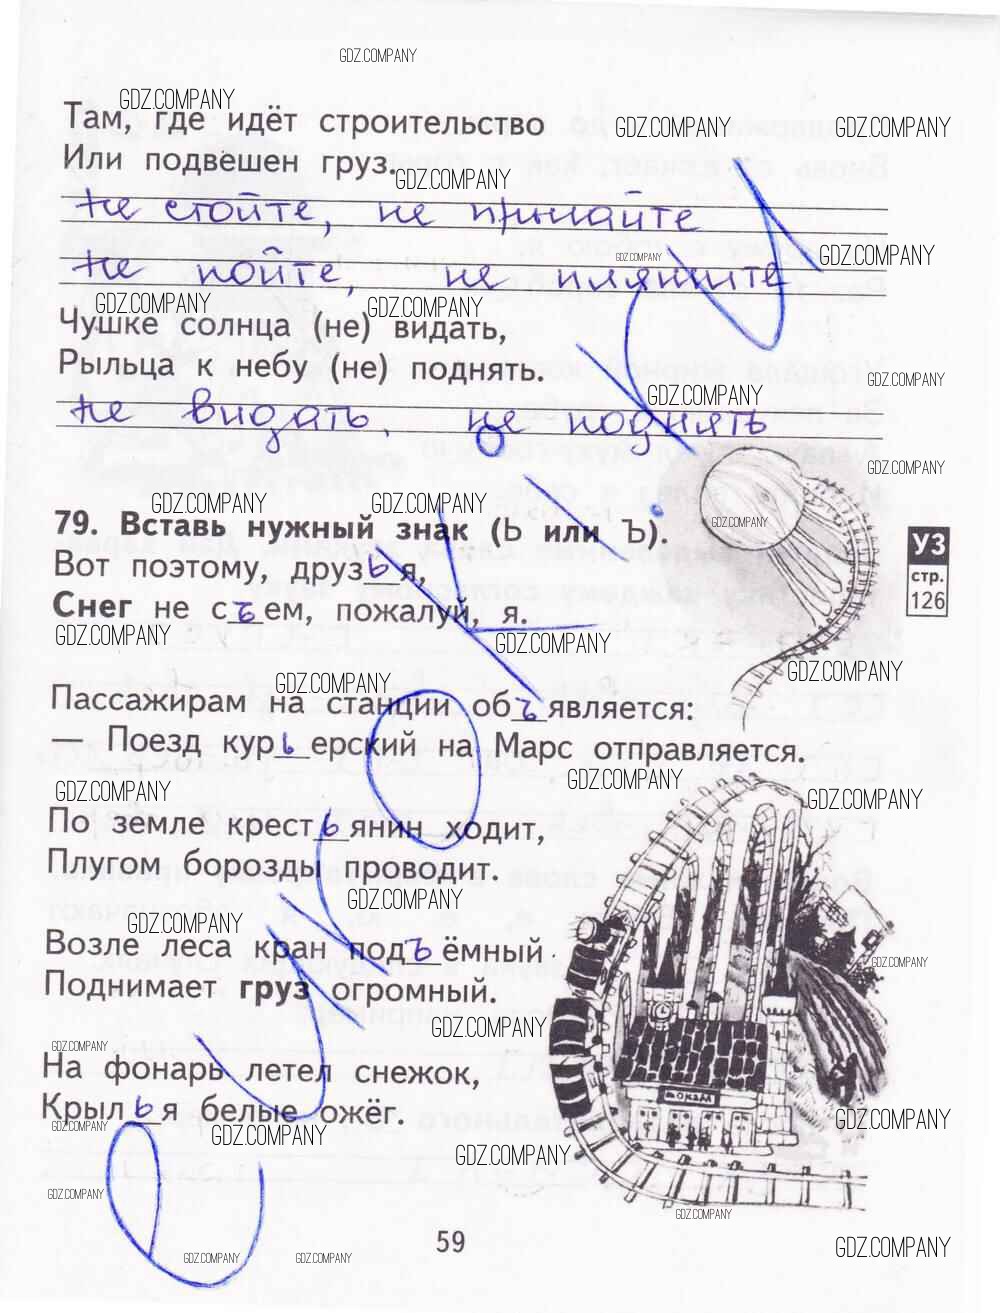 Там, где идёт строительство
Или подвешен груз.
не стойте, не прыгайте
не пойте, не пляшите
Чушке солнца (не) видать,
Рыльца к небу (не) поднять.
не видать, не поднять
79. Вставь нужный знак (Ь или Ъ).
УЗ
стр.
126
Вот поэтому, друзья,
Снег не съем, пожалуй, я.
Пассажирам на станции объявляется:
— Поезд курьерский на Марс отправляется.
По земле крестьянин ходит,
Плугом борозды проводит.
Возле леса кран подъёмный
Поднимает груз огромный.
На фонарь летел снежок,
Крылья белые ожёг.
59
GDZ.COMPANY